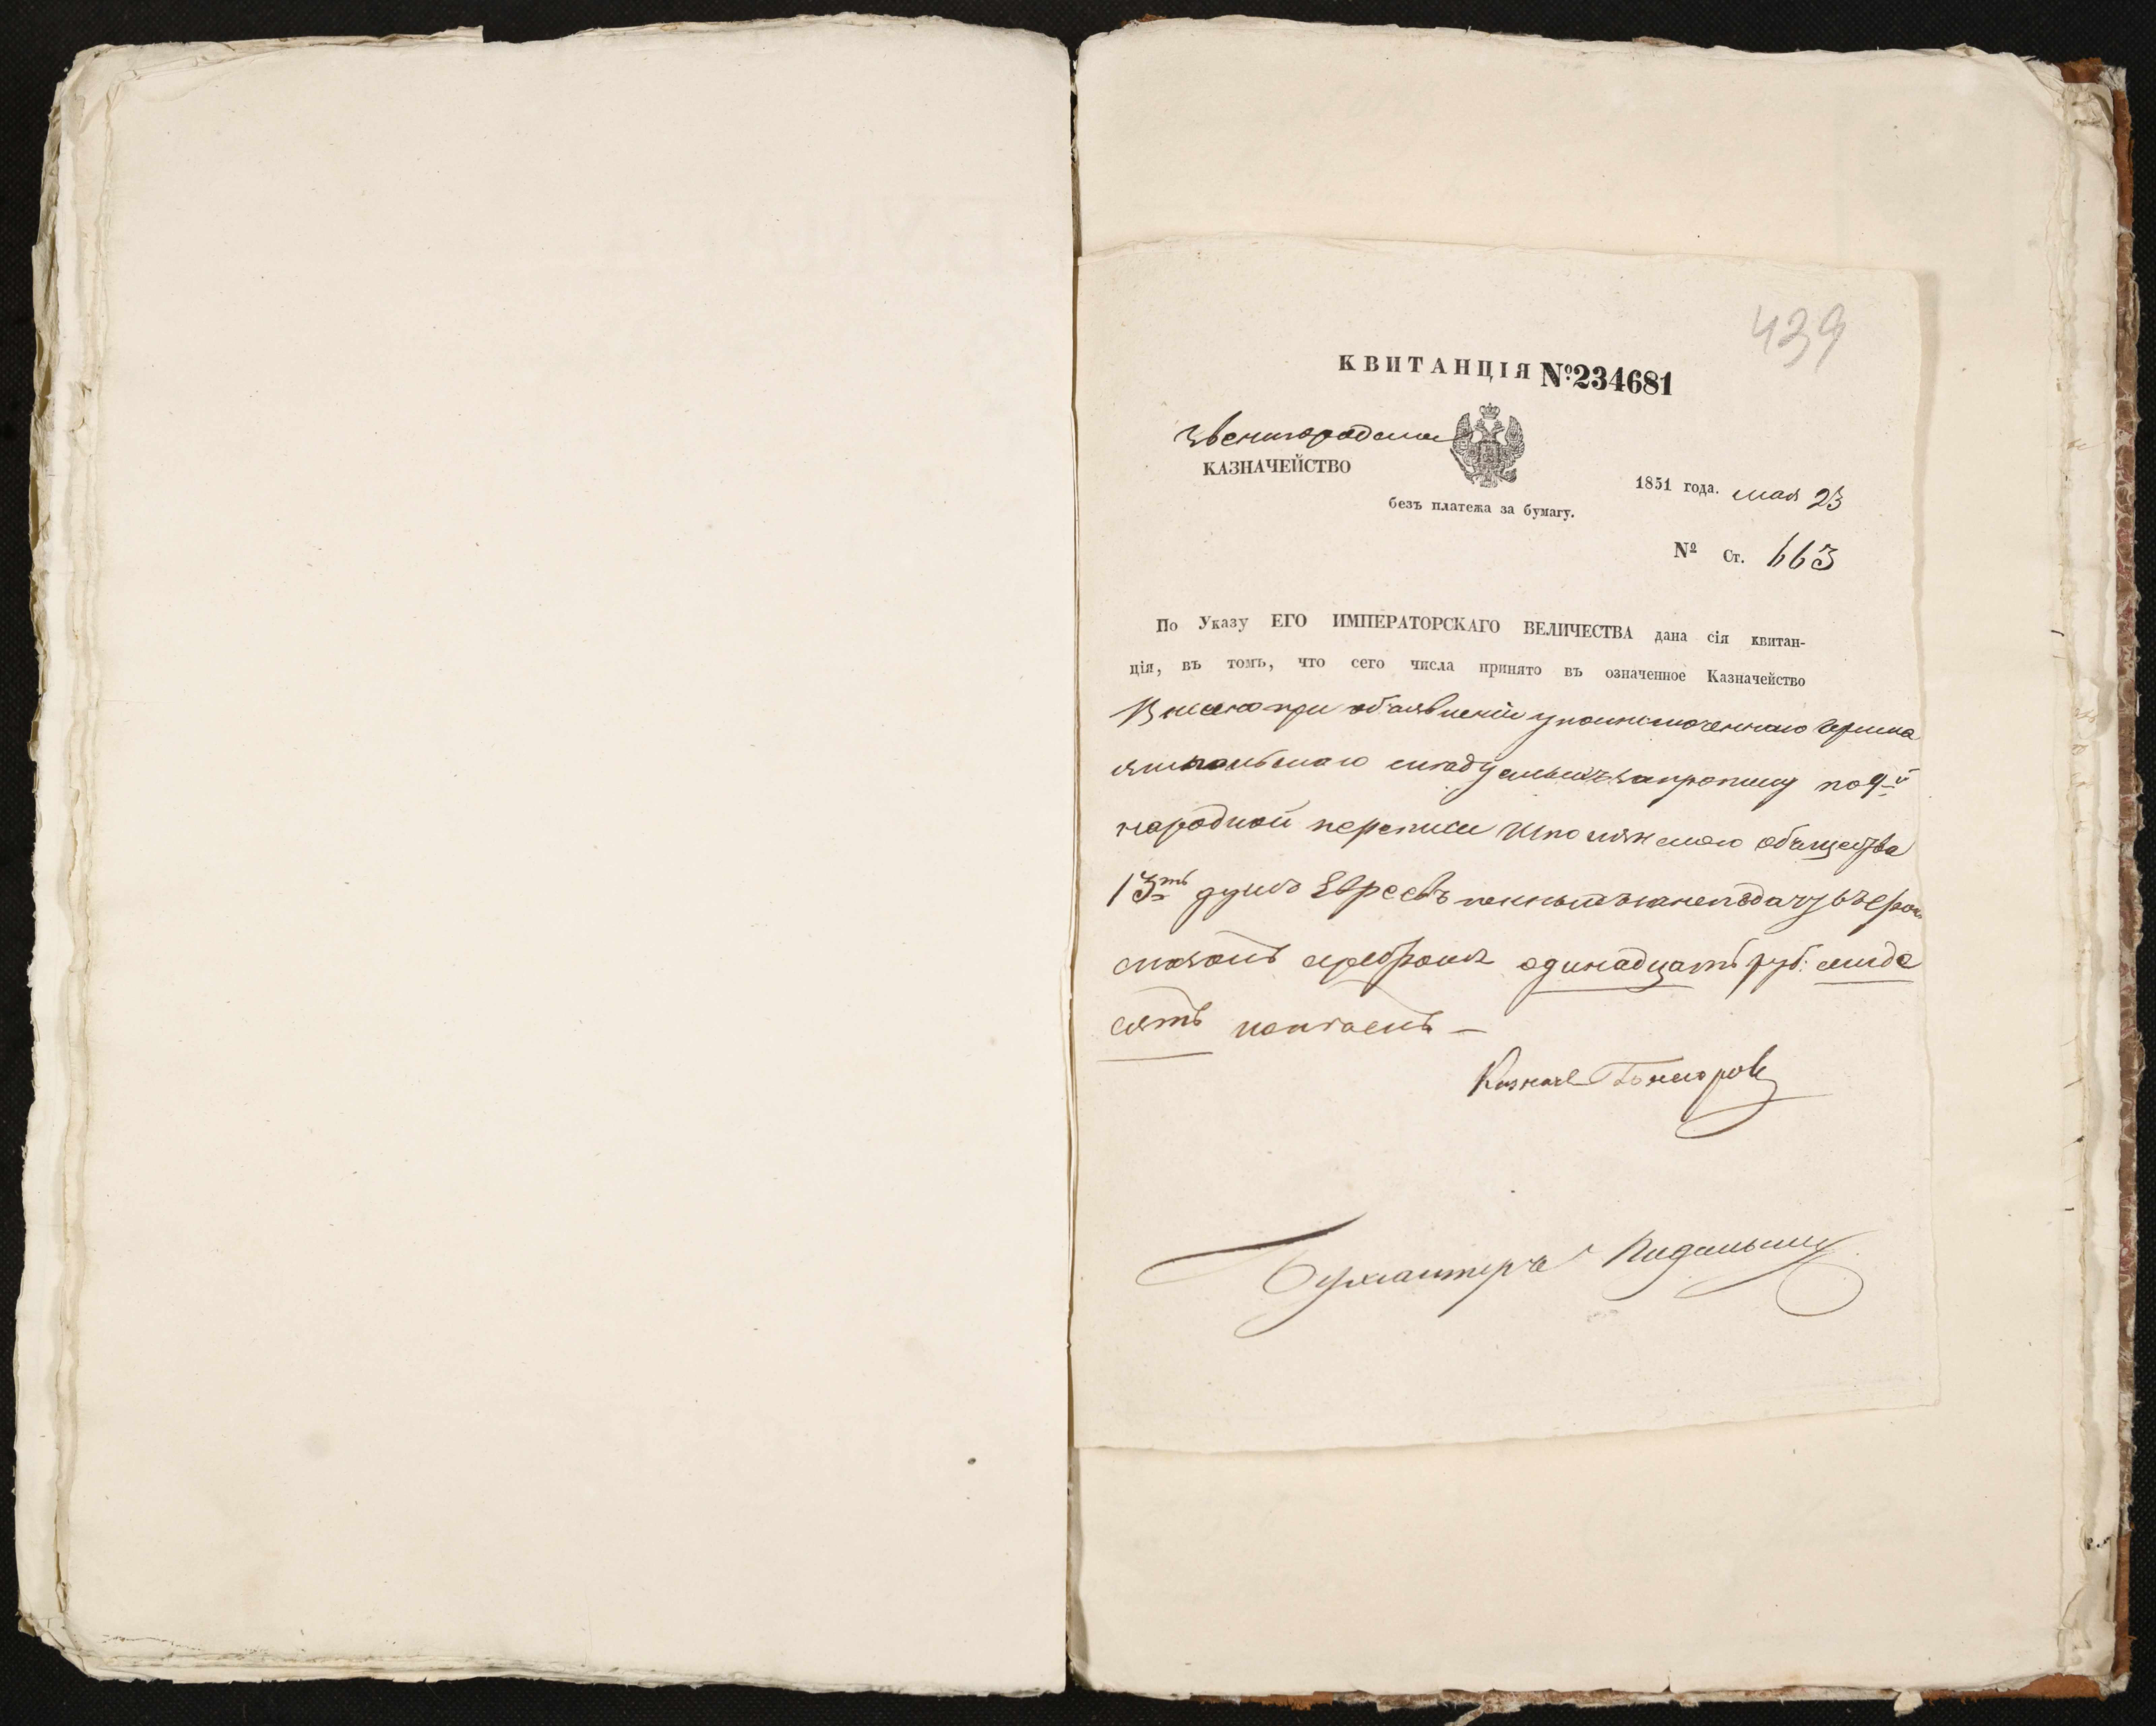 439
КВИТАНЦІЯ №234681
Звенигородское
КАЗНАЧЕЙСТВО
1851 года. мая 23
безъ платежа за бумагу.
№ Ст. 663
По Указу ЕГО ИМПЕРАТОРСКАГО ВЕЛИЧЕСТВА дана сія квитан-
ція, въ томъ, что сего числа принято въ означенное Казначейство
при объявленіи уполномоченнаго
за прописку по 9-й
народной переписи Шполянскаго общества
13ть душъ Евреевъ
серебромъ одинадцать руб: семде
сятъ копѣекъ —
Казначей
Бухгалтеръ